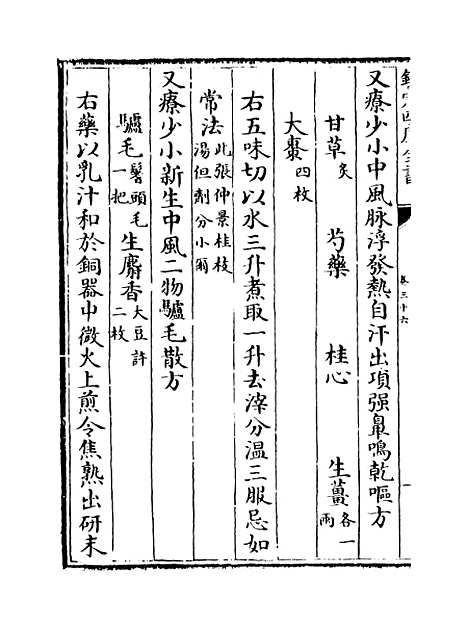 欽定四庫全書
卷三十六
又療少小中風脉浮發熱自汗出項强鼻鳴乾嘔方
甘草炙 芍藥 桂心 生薑各一兩
大棗四枚
右五味切以水三升煮取一升去滓分温三服忌如
常法此張仲景桂枝湯但劑分小爾
又療少小新生中風二物驢毛散方
驢毛髻頭毛一把 生麝香大豆許二枚
右藥以乳汁和於銅器中微火上煎令焦熟出研末